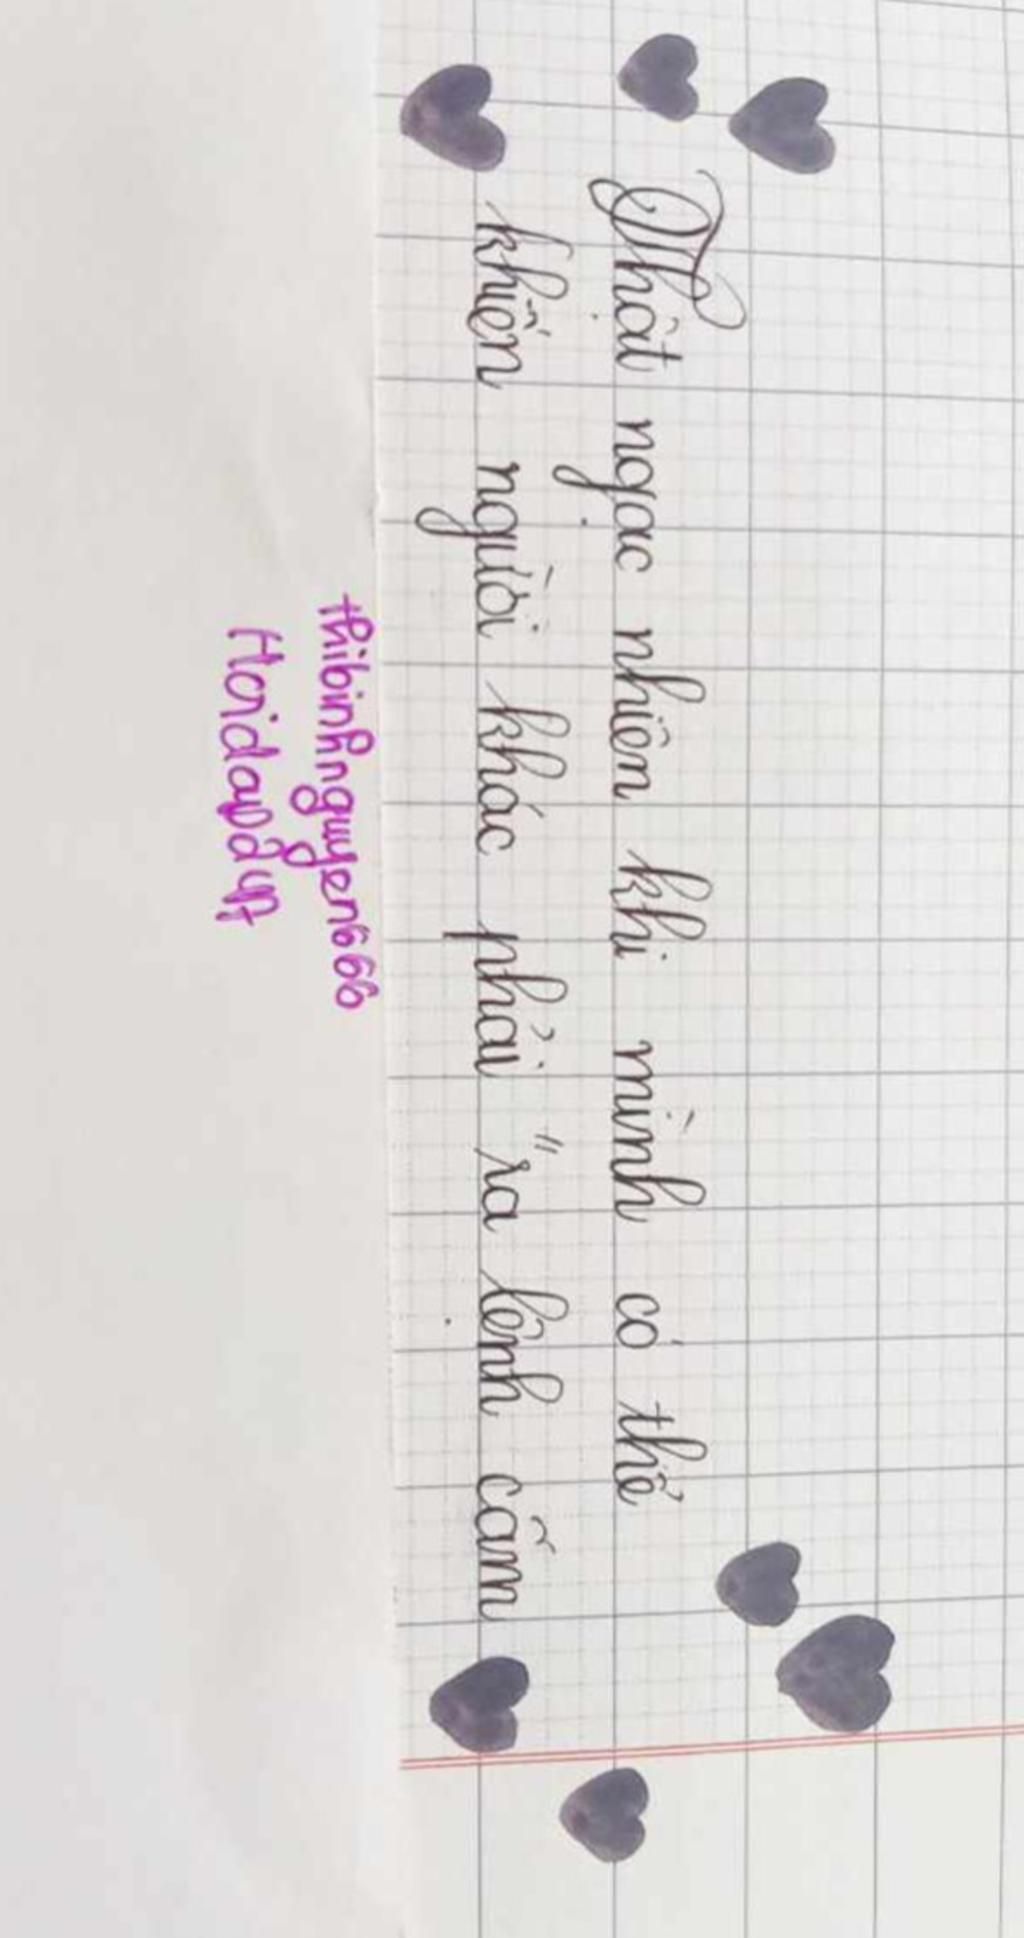 Thật ngạc nhiên khi mình có thể
khiến người khác phải "ra lệnh cấm
thibinhnguyen660
Hoidap247